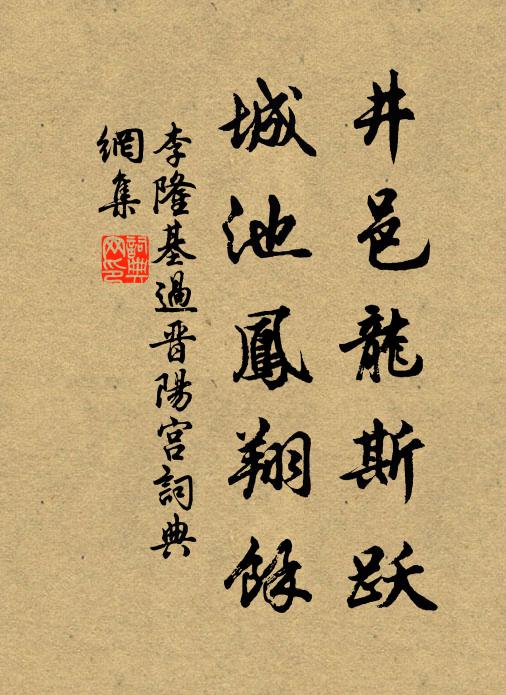 井邑龍斯跃
城池鳳翔餘
李隆基過晋陽宫詞典
網集
詞典网印